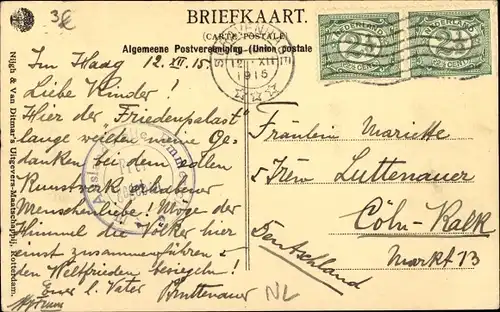 3€
BRIEFKAART.
(CARTE POSTALE)
Algemeene Postvereeniging (Union postale
NEDERLAND
2½
2½ CENT
NEDERLAND
2½
2½ CENT
12 XII
1915
Im Haag 12. XII. 15.
Liebe Kinder!
Hier der "Friedenspalast"
lange weilten meine Ge-
danken bei dem edlen
Kunstwerk erhabener
Menschenliebe! Möge der
Himmel die Völker hier
einst zusammenführen &
den Weltfrieden besiegeln!
Euer l. Vater
Fräulein Mariette
Luttenauer
Cöln-Kalk
Markt 13
Deutschland
NL
Nijgh & Van Ditmar's Uitgevers-Maatschappij, Rotterdam.